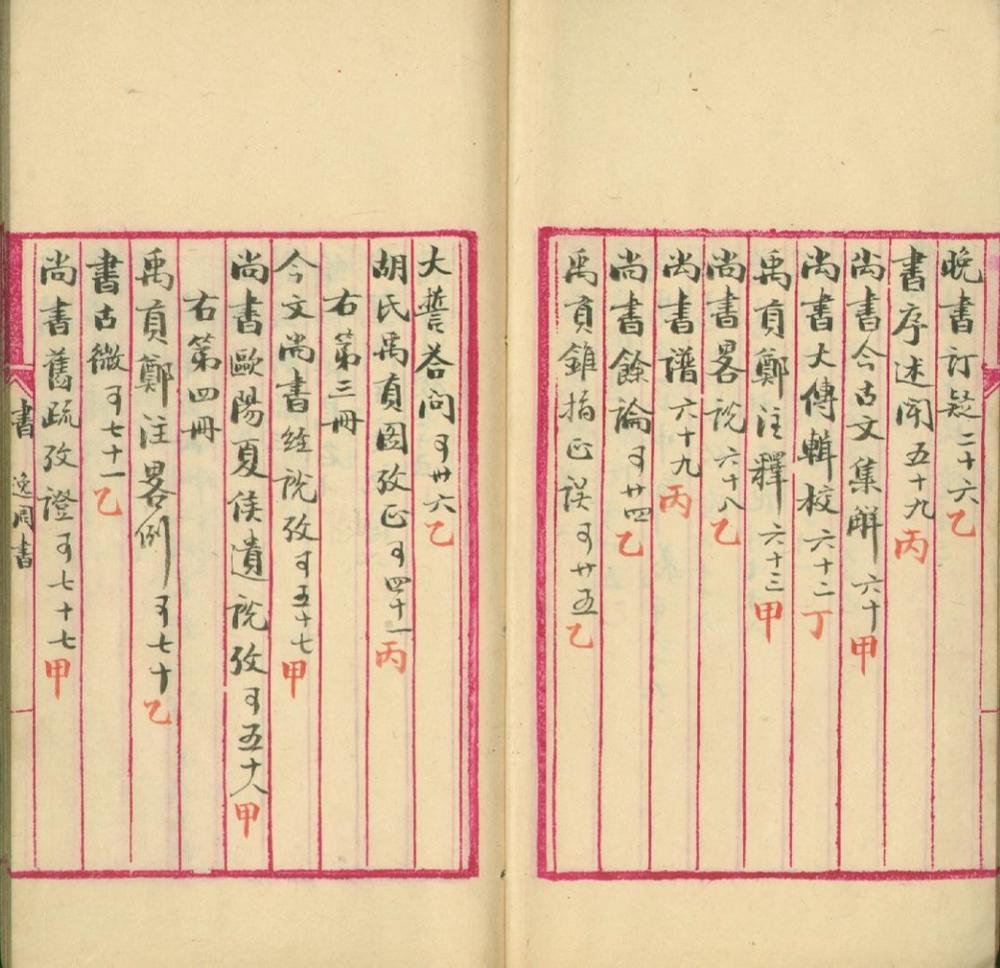 晚書訂疑二十六乙
書序述聞五十九丙
尚書今古文集解六十甲
尚書大傳輯校六十二丁
禹貢鄭注釋六十三甲
尚書畧說六十八乙
尚書譜六十九丙
尚書餘論可廿四乙
禹貢錐指正误可廿五乙
大誓荅問可卅六乙
胡氏禹貢圖攷正可四十一丙
右第三冊
今文尚書經說攷可五十七甲
尚書歐陽夏侯遺說攷可五十八甲
右第四冊
禹貢鄭注畧例可七十乙
書古微可七十一乙
尚書舊疏攷證可七十七甲
書 逸周書